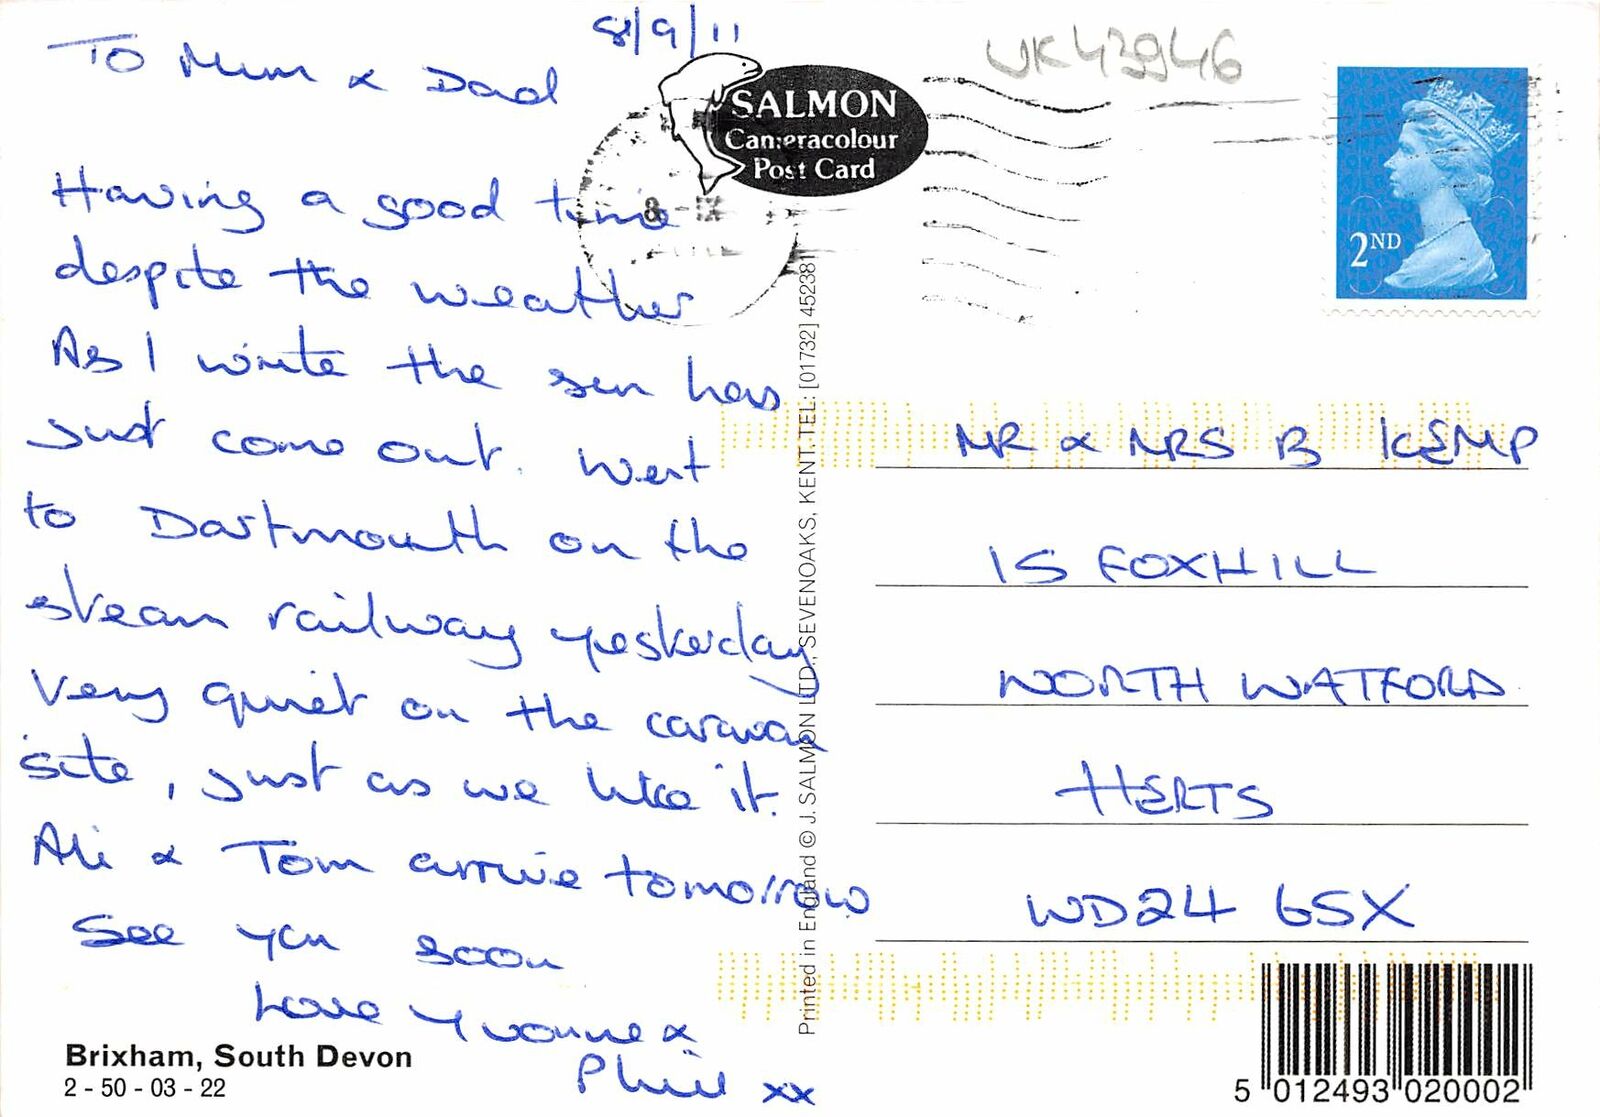 8/9/11
To Mum & Dad
Having a good time
despite the weather
As I write the sun has
just come out. Went
to Dartmouth on the
steam railway yesterday
Very quiet on the caravan
site, just as we like it.
Ali & Tom arrive tomorrow
See you soon
Love Yvonne &
Phill xx
Brixham, South Devon
2 - 50 - 03 - 22
SALMON
Cameracolour
Post Card
8 - IX
Printed in England © J. SALMON LTD., SEVENOAKS, KENT. TEL: [01732] 452381
UK43946
2ND
MR & MRS B KEMP
15 FOXHILL
NORTH WATFORD
HERTS
WD24 6SX
5 012493 020002